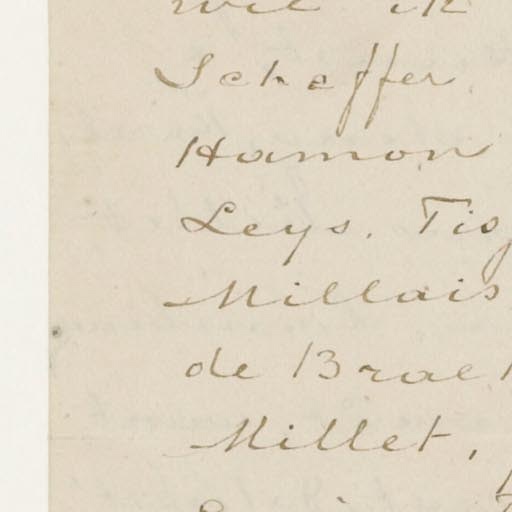 wil ik
Scheffer
Hamon
Leys. Tis
Millais
de Brae
Millet,